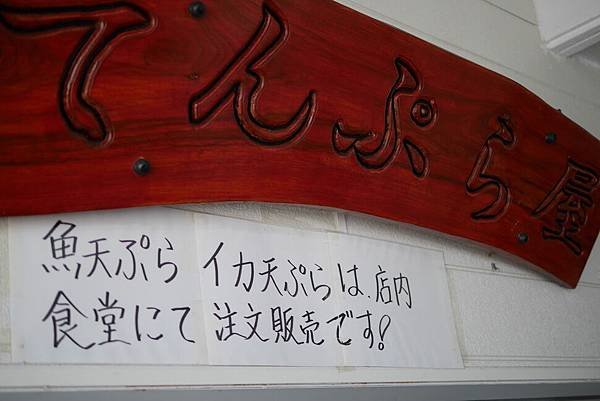 てんぷら屋
魚天ぷら イカ天ぷらは、店内
食堂にて 注文販売です!